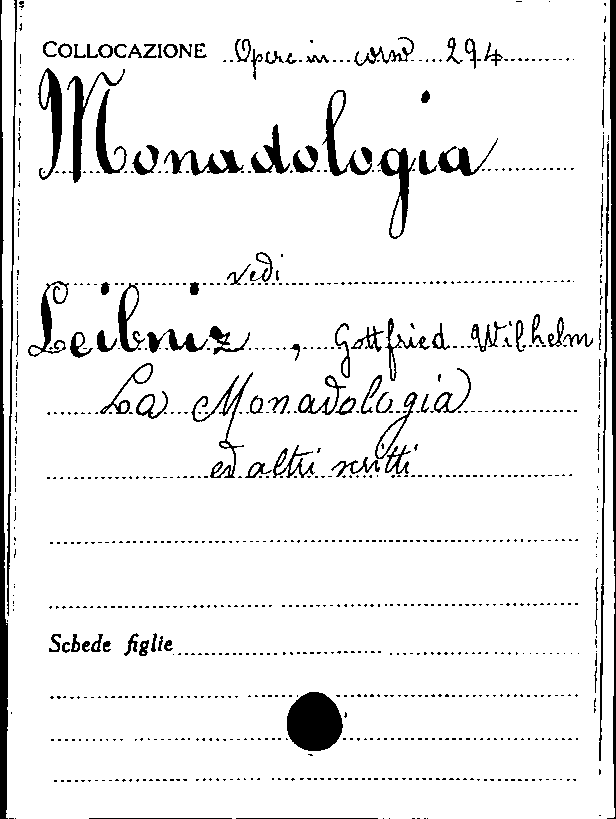 COLLOCAZIONE Opere in corso 294
Monadologia
vedi
Leibniz, Gottfried Wilhelm
La Monadologia
ed altri scritti
Schede figlie